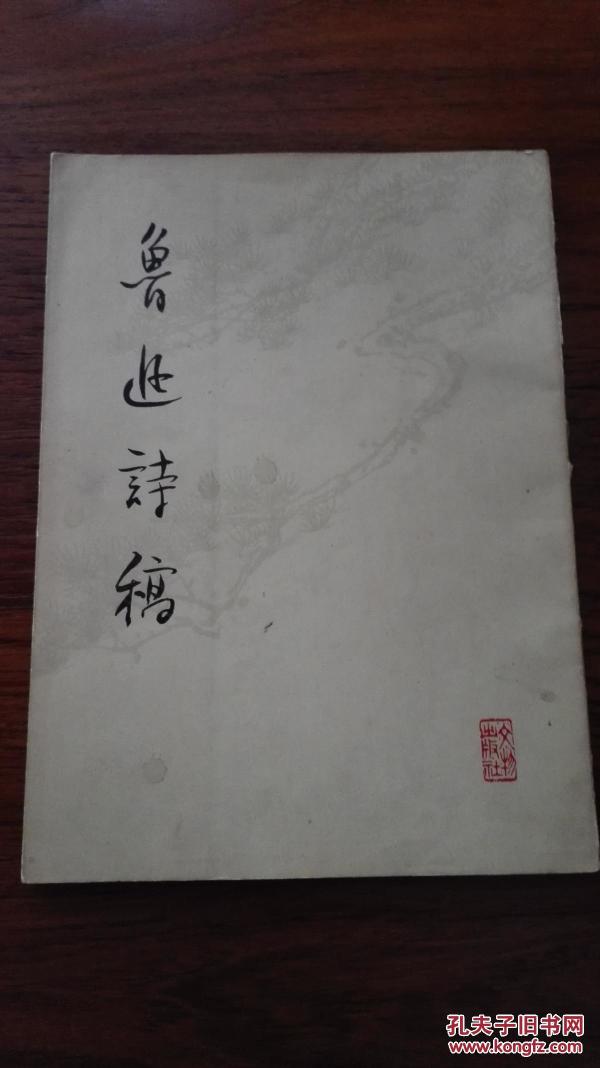 魯迅詩稿
文物
出版社
孔夫子旧书网
www.kongfz.com